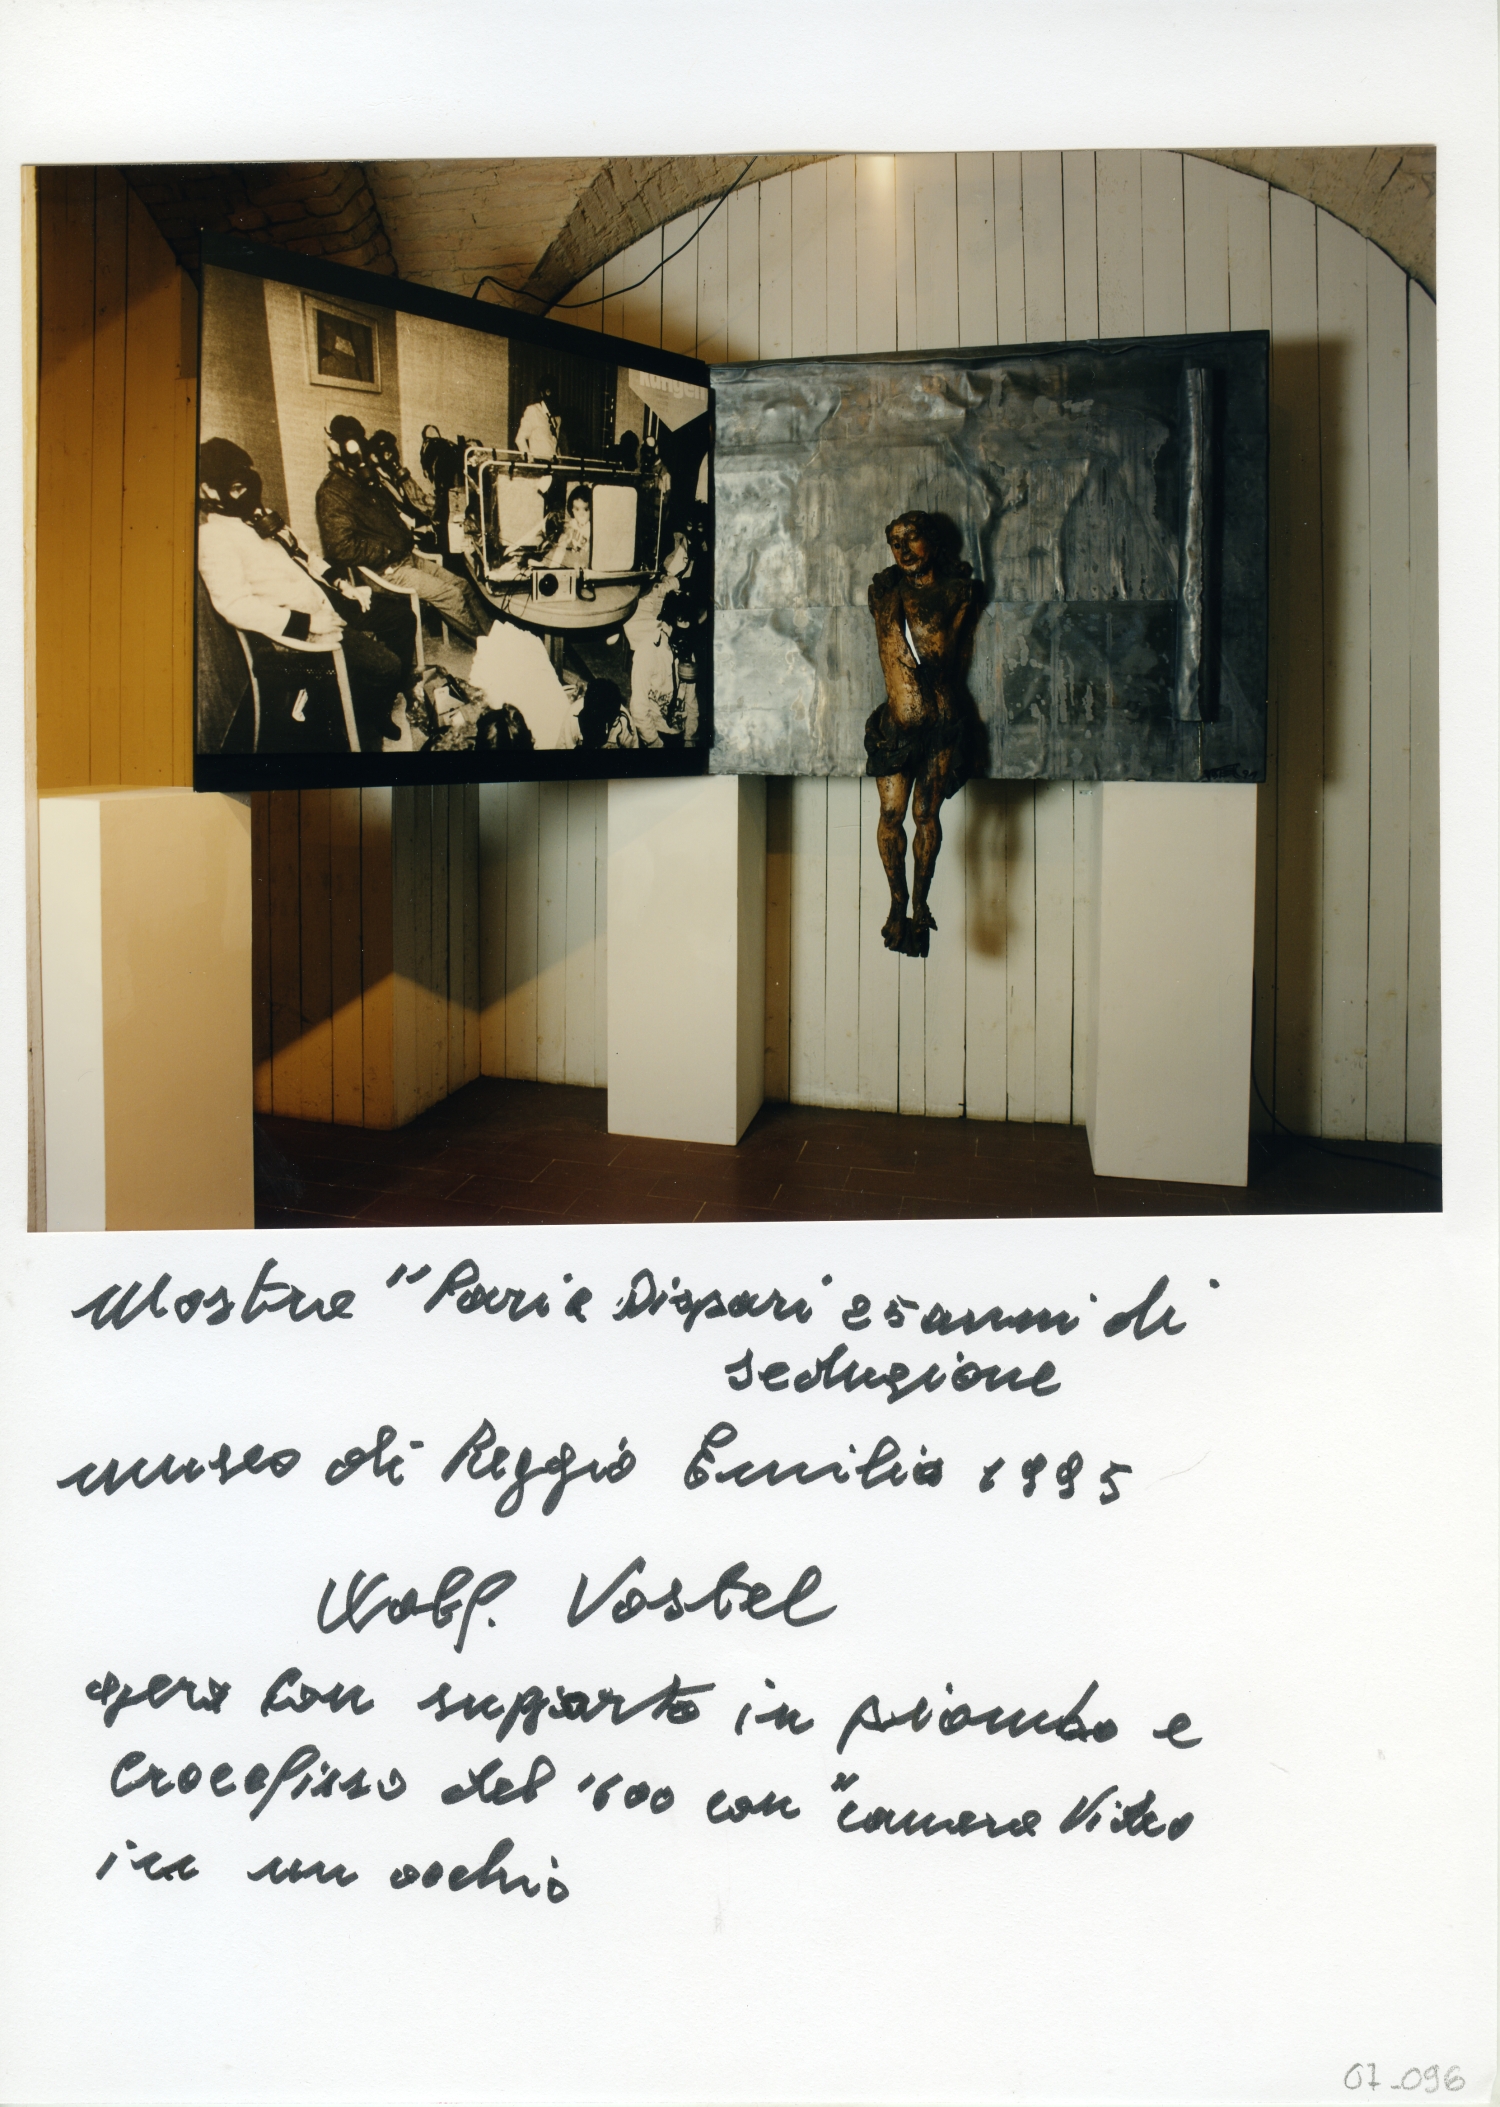 kungen
Mostra "Pari e Dispari 25 anni di
seduzione
museo di Reggio Emilia 1995
Wolf. Vostel
opera con supporto in piombo e
Crocefisso del '600 con "camera Video
in un occhio
07_096